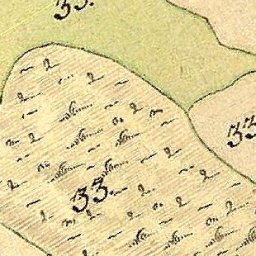 33.
33
33.